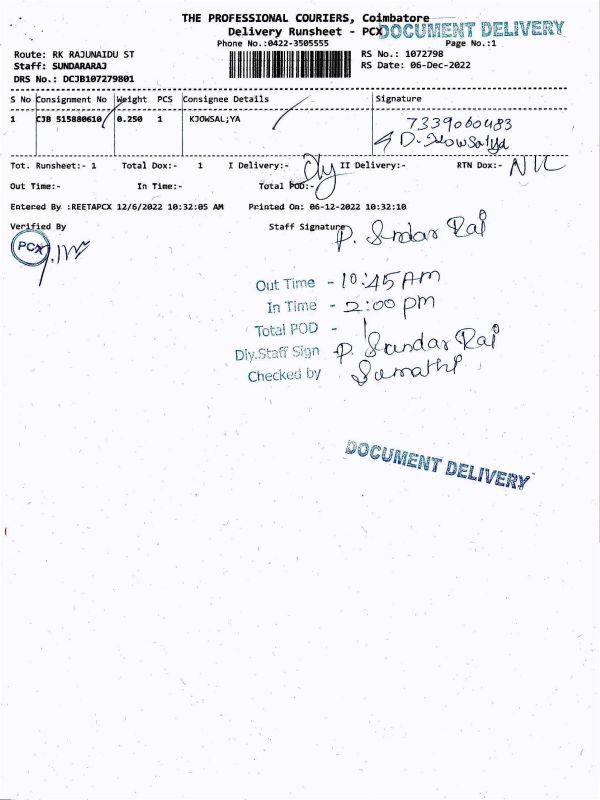 THE PROFESSIONAL COURIERS, Coimbatore
Delivery Runsheet - PCX
DOCUMENT DELIVERY
Phone No.:0422-3505555
Page No.:1
Route: RK RAJUNAIDU ST
RS No.: 1072798
Staff: SUNDARARAJ
RS Date: 06-Dec-2022
DRS No.: DCJB107279801
S No Consignment No Weight PCS Consignee Details Signature
1 CJB 515880610 0.250 1 KJOWSAL;YA
7339060483
D. Kowsalya
Tot. Runsheet:- 1 Total Dox:- 1 I Delivery:- Dly II Delivery:- RTN Dox:- Nil
Out Time:- In Time:- Total POD:-
Entered By :REETAPCX 12/6/2022 10:32:05 AM Printed On: 06-12-2022 10:32:10
Verified By Staff Signature P. Sundar Raj
PCX
Out Time - 10:45 AM
In Time - 2:00 pm
Total POD - 1
Dly.Staff Sign P. Sundar Raj
Checked by Sumathi
DOCUMENT DELIVERY